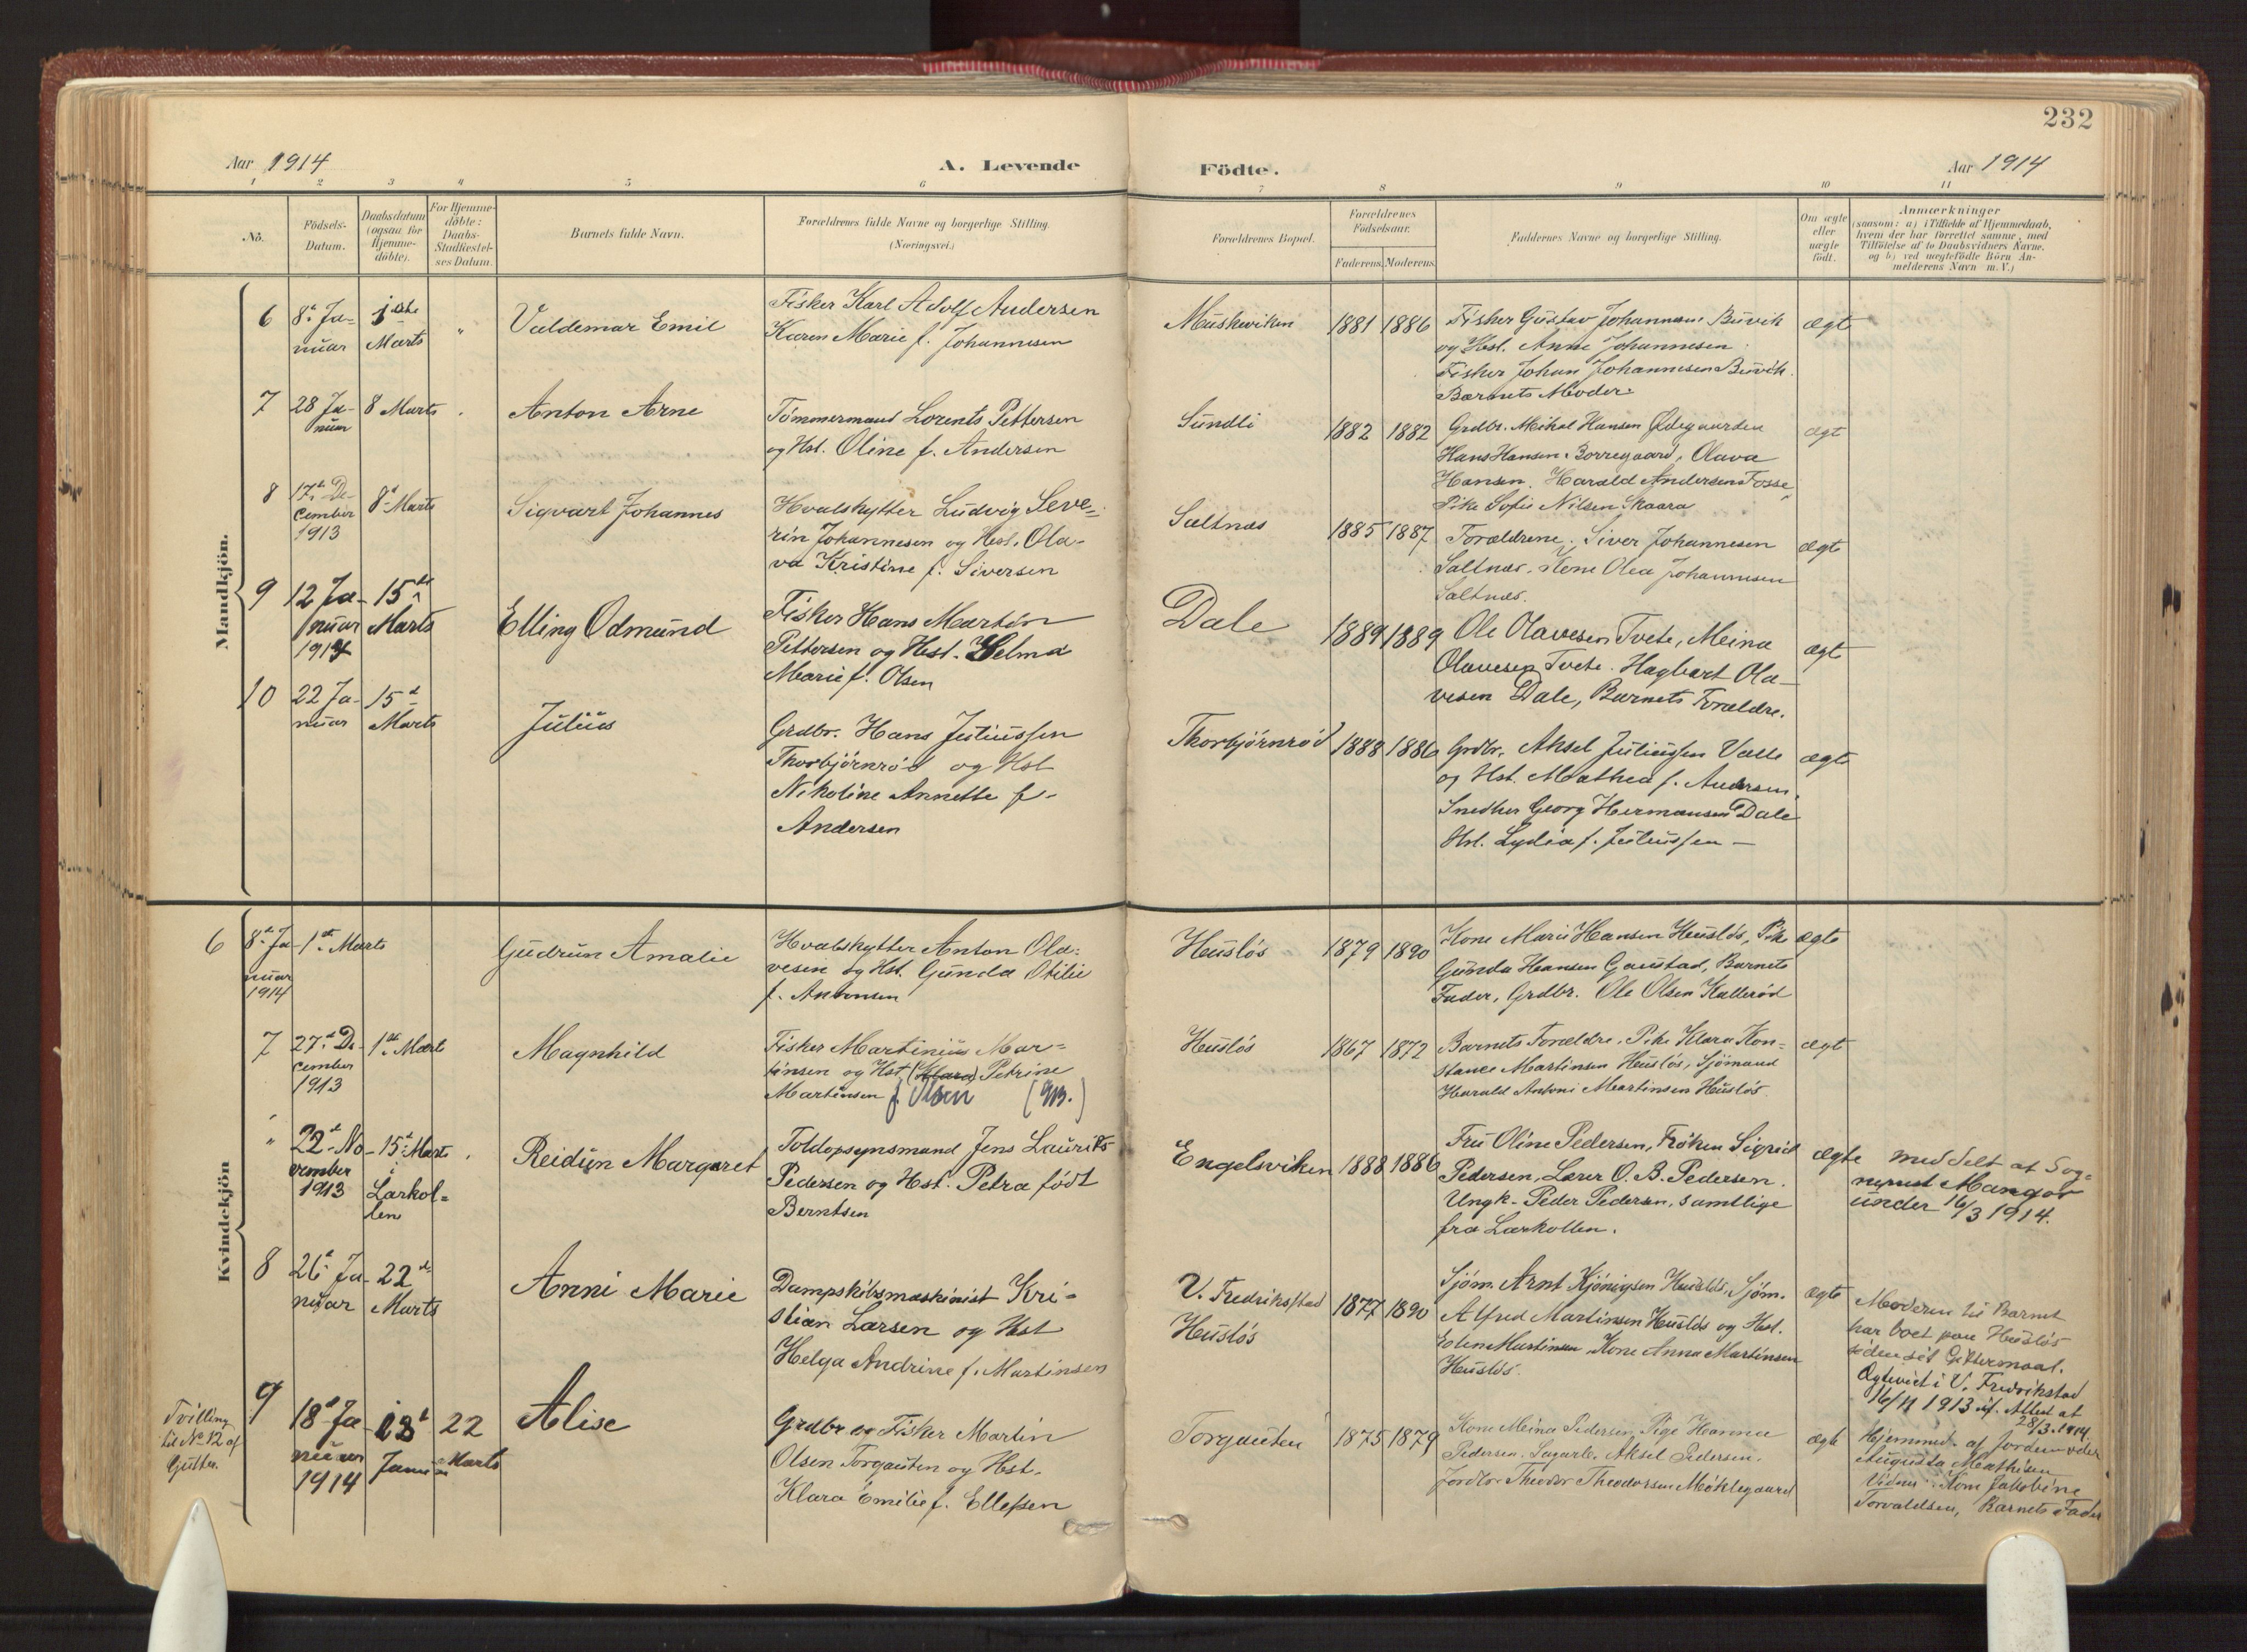 232
Aar 1914
A. Levende
Födte.
Aar 1914
1 2 3 4 5 6 7 8 9 10 11
No.
Födsels-
Datum.
Daabsdatum
(ogsaa for
Hjemme-
döbte).
For Hjemme-
döbte:
Daabs-
Stadfæstel-
ses Datum.
Barnets fulde Navn.
Forældrenes fulde Navne og borgerlige Stilling.
(Næringsvei.)
Forældrenes Bopæl.
Forældrenes
Födselsaar.
Faderens. Moderens.
Faddernes Navne og borgerlige Stilling.
Om ægte
eller
uægte
födt.
Anmærkninger
(saasom: a) i Tilfælde af Hjemmedaab,
hvem der har forrettet samme, med
Tilföielse af to Daabsvidners Navne.
og b) ved uægtefödte Börn An-
melderens Navn m. V.)
Mandkjön.
6
8de Ja-
nuar
1ste
Marts
"
Valdemar Emil
Fisker Karl Adolf Andersen
Karen Marie f. Johannesen
Muskeviken
1881 1886
Fisker Gustav Johannesen Buvik
og Hst. Anne Johannesen.
Fisker Johan Johannesen Buvik.
Barnets Moder.
ægte
7
28 Ja-
nuar
8 Marts
Anton Arne
Tömmermand Lorents Pettersen
og Hst. Oline f. Andersen
Sundli
1882 1882
Grdbr. Mikal Hansen Ødegaarden
Hans Hansen Borregaard, Olava
Hansen. Harald Andersen Fosse,
Pike Sofie Nilsen Skaara
ægt
8
17de De-
cember
1913
8de Marts
Sigvart Johannes
Hvalskytter Ludvig Seve-
rin Johannesen og Hst. Ola-
va Kristine f. Siversen
Saltnæs
1885 1887
Forældrene. Siver Johannesen
Saltnæs. Kone Olea Johannesen
Saltnæs.
ægte
9
12 Ja-
nuar
1914
15de
Marts
Elling Odmund
Fisker Hans Martin
Pettersen og Hst. Helma
Marie f. Olsen
Dale
1889 1889
Ole Olavesen Tvete, Meina
Olavesen Tvete. Hagbart Ola-
vesen Dale, Barnets Forældre.
ægt
10
22 Ja-
nuar
15de
Marts
Julius
Grdbr. Hans Juliussen
Thorbjörnröd og Hst
Nikoline Annette f.
Andersen
Thorbjörnröd
1888 1886
Grdbr. Aksel Juliussen Valle
og Hst. Mathea f. Andersen.
Snedker Georg Hermansen Dale
Hst. Lydia f. Juliussen —
ægte
Kvindekjön
6
8de Ja-
nuar
1914
1ste Marts
Gudrun Amalie
Hvalskytter Anton Ola-
vesen og Hst. Gunda Otilie
f. Antonsen
Huslös
1879 1890
Kone Marie Hansen Huslös, Pike
Gunda Hansen Gaustad, Barnets
Fader, Grdbr. Ole Olsen Kallerød
ægte
7
27de De-
cember
1913
1ste Marts
Magnhild
Fisker Martinius Mar-
tinsen og Hst. (Klara) Petrine
Martinsen f. Olsen
Huslös
1867 1872
Barnets Forældre. Pike Klara Kon-
stance Martinsen Huslös, Sjömand
Harald Antoni Martinsen Huslös.
ægt
"
22de No-
vember
1913
15de Marts
i
Larkol-
len
Reidun Margaret
Toldopsynsmand Jens Laurits
Pedersen og Hst. Petra født
Berntsen
Engelsviken
1888 1886
Fru Oline Pedersen, Fröken Sigrid
Pedersen, Lærer O. B. Pedersen.
Ungk. Peder Pedersen, samtlige
fra Larkollen.
ægte
meddelt af Sog-
neprest Mangor
under 16/3 1914.
8
26de Ja-
nuar
22de
Marts
Anni Marie
Dampskibsmaskinist Kri-
stian Larsen og Hst
Helga Andrine f. Martinsen
V. Fredriksstad
Huslös
1877 1890
Sjöm. Arnt Kjönigsen Huslös, Sjöm.
Alfred Martinsen Huslös og Hst.
Martinsen, Kone Anna Martinsen
Huslös.
ægte
Moderen til Barnet
har boet paa Huslös
siden sit Giftermaal.
Ægteviet i V. Fredrikstad
16/11 1913 if. Attest af
28/3.1914.
Tvilling
til No 12 af
Gutter.
9
18de Ja-
nuar
1914
18de
Januar
22
Marts
Alise
Grdbr og Fisker Martin
Olsen Torgauten og Hst.
Klara Emilie f. Ellefsen
Torgauten
1875 1879
Kone Meina Pedersen, Pige Hanna
Pedersen. Aksel Pedersen.
Theodor Theodorsen Möklegaard
ægte
Hjemmed. af Jordemoder
Augusta Mathisen
Vidner: Kone Jakobine
Torvaldsen, Barnets Fader